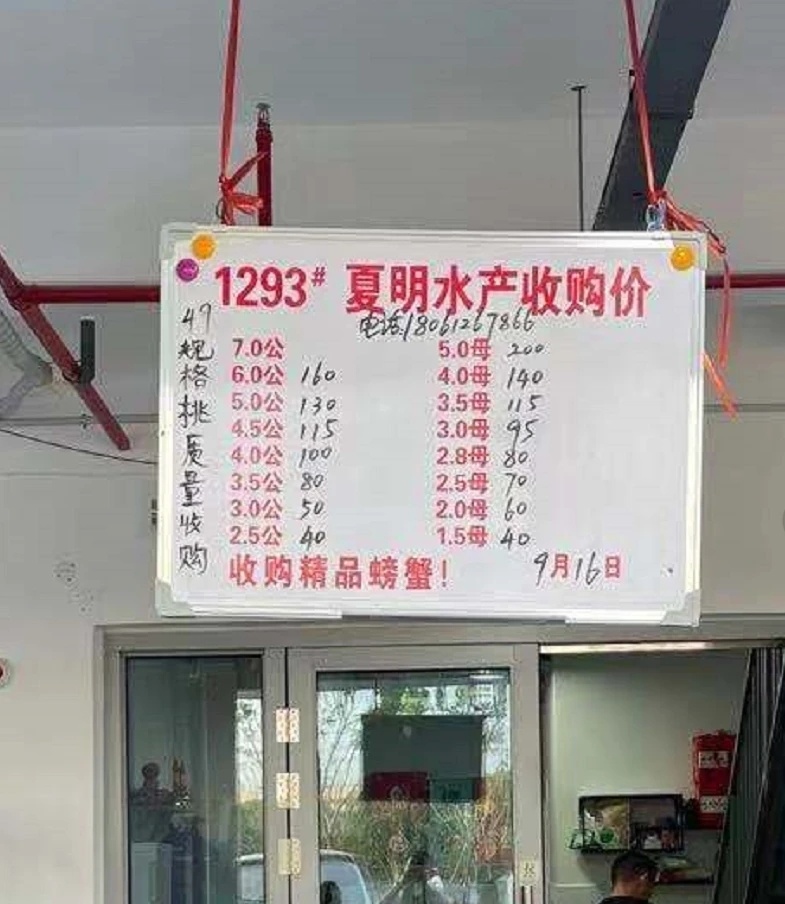 1293# 夏明水产收购价
电话:18061267866
规格挑质量收购
7.0公
5.0母 200
6.0公 160
4.0母 140
5.0公 130
3.5母 115
4.5公 115
3.0母 95
4.0公 100
2.8母 80
3.5公 80
2.5母 70
3.0公 50
2.0母 60
2.5公 40
1.5母 40
收购精品螃蟹!
9月16日